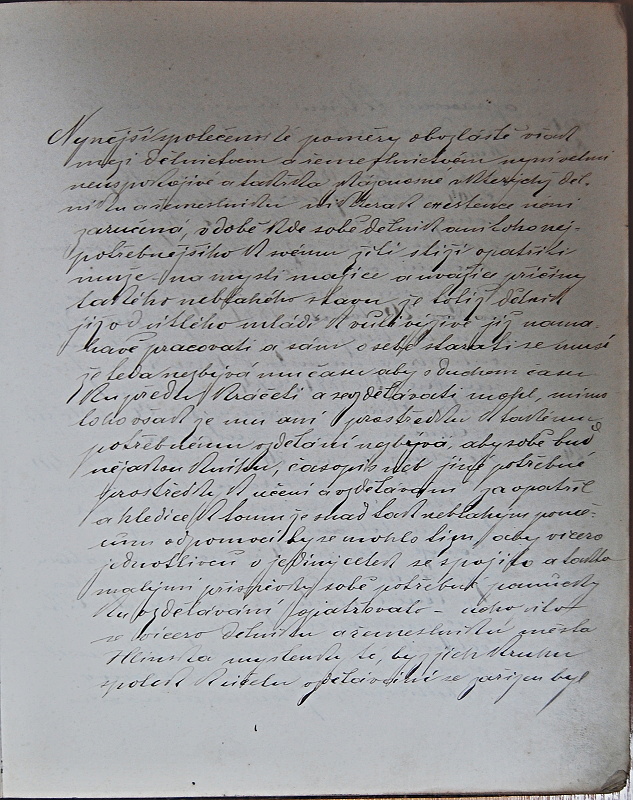 Nynější společenské poměry obzláště však
mezi dělnictvem a řemeslnictvem nyní velmi
neuspokojivé a takřka v kterých děl-
níku a řemeslníku nikterak existence není
zaručená, v době kde sobě dělník ani toho nej-
potřebnejšího k svému žití stíží opatřiti
může - na mysli majíce a uvážíce příčiny
takého neblahého stavu, je totiž dělník
již od útlého mládí k vůli výživě již nama-
havě pracovati a sám o sebe starati se musí
je teda nezbývá mu času aby s duchem času
ku předu kráčeti a vzdělávati mohl, mimo
toho však je mu ani prostředku k takému
potřebnému vzdělání nezbývá aby sobě buď
nějakou knihu, časopis neb jiné potřebné
prostředky k učení a vzdělávání zaopatřil
a hledíce k tomu je snad tak neblahým pomě-
rům odpomoci by se mohlo tím, aby vícero
jednotlivců v jediný celek se spojilo a takto
malými príspěvky sobě potřebné pomůcky
ku vzdělávání opatřovalo -
se vícero dělníku a řemeslníků města
Hlinska myslenky té, by v jich kruhu
spolek k účelu vzdělávání se zařízen byl